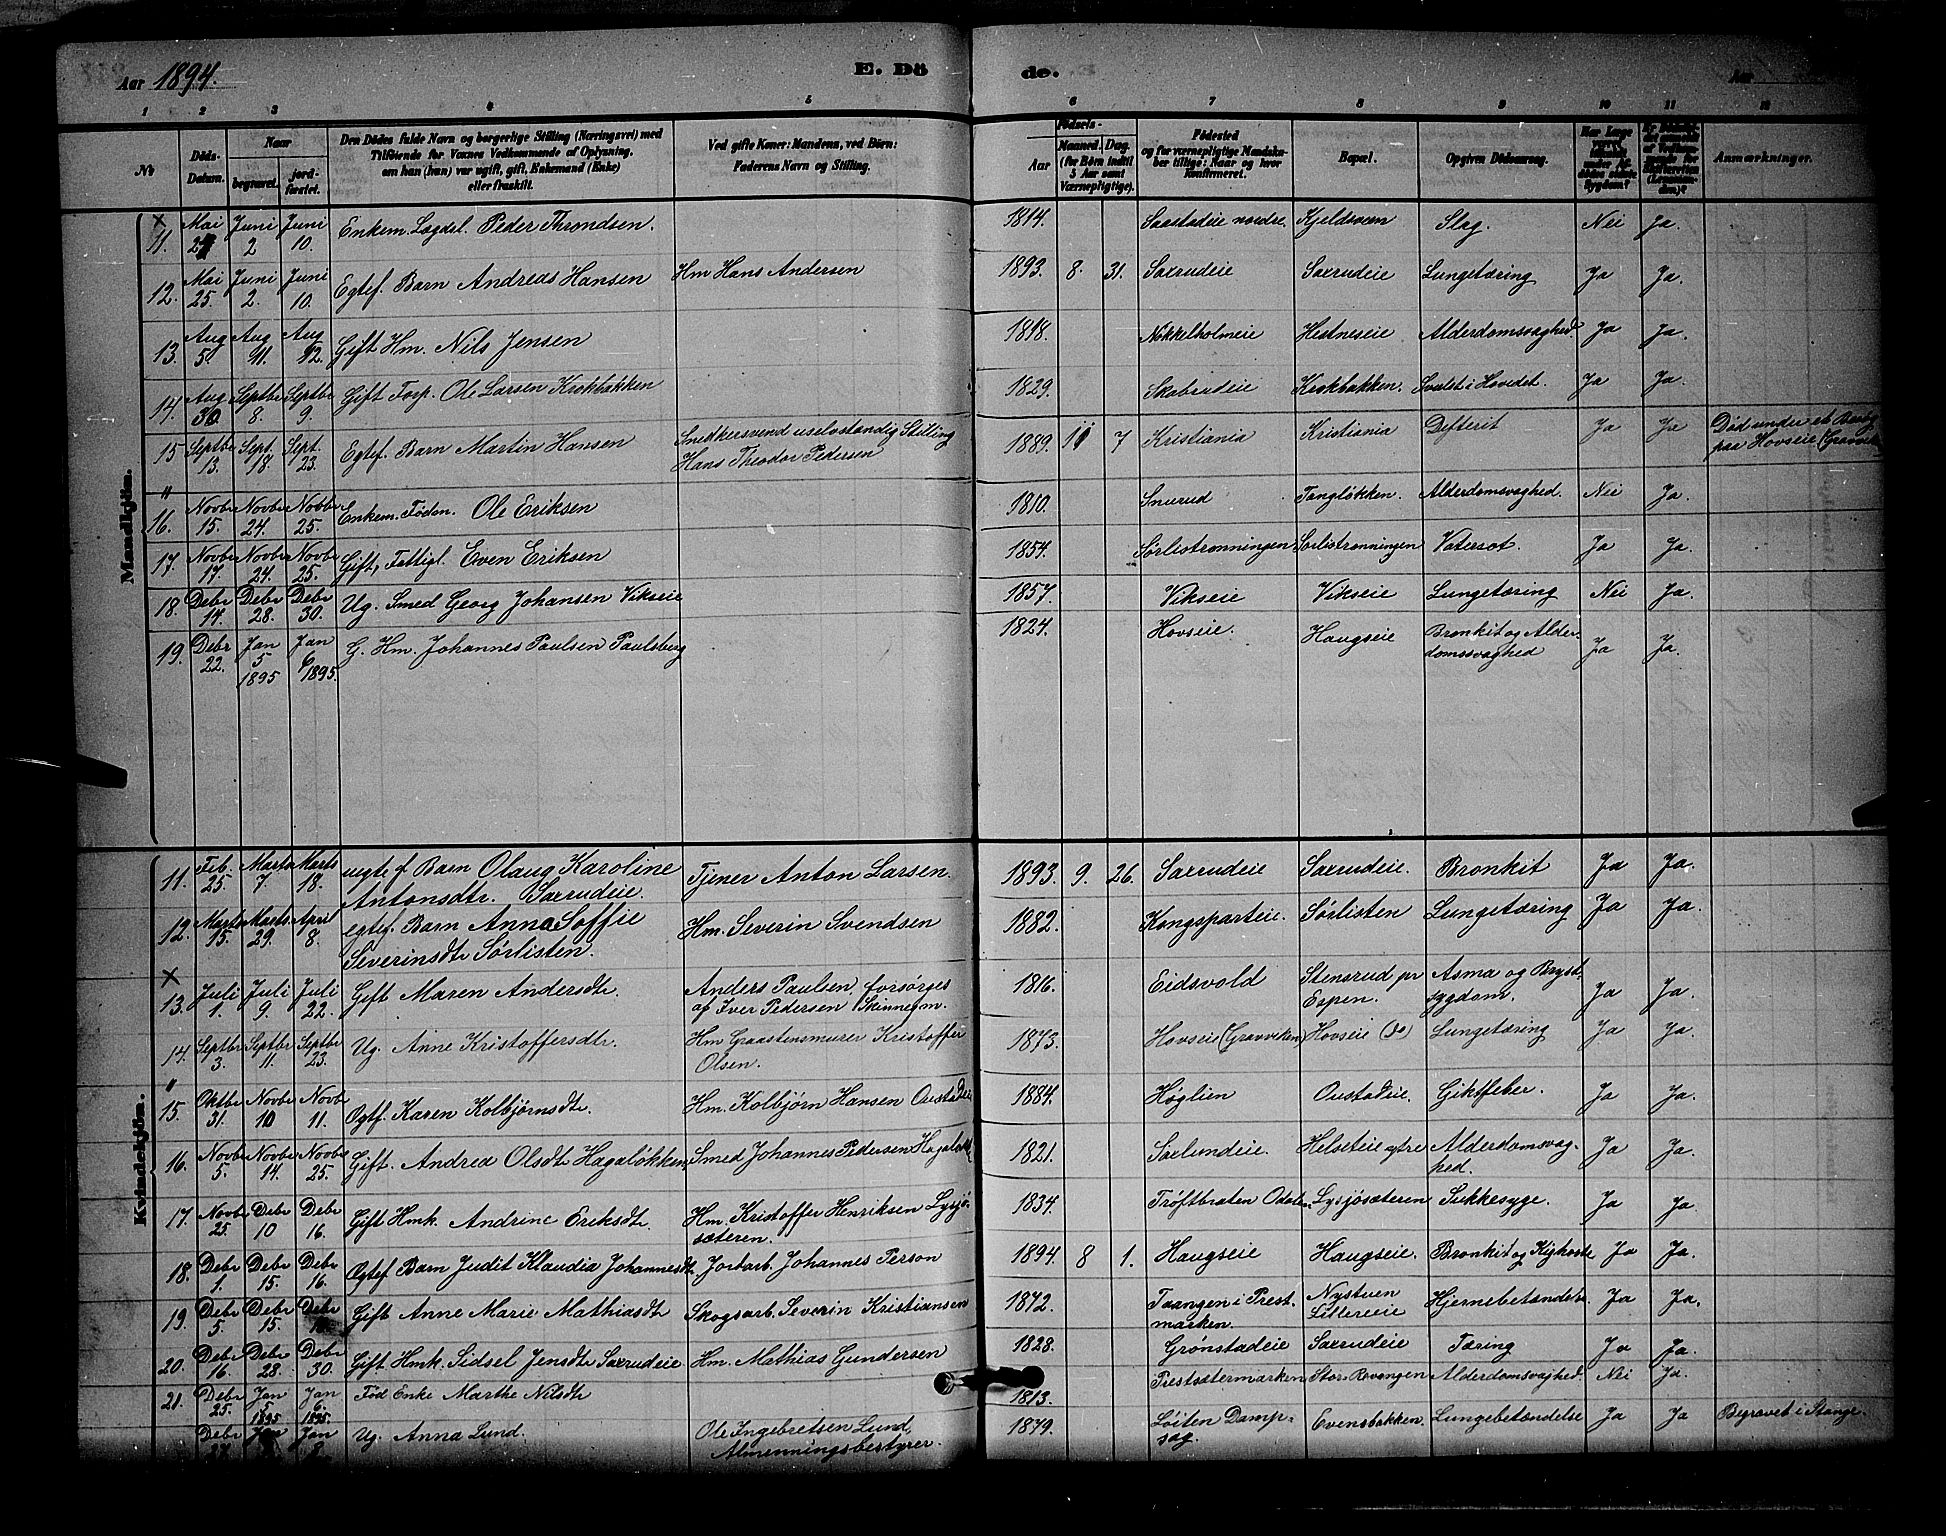 Aar 1894. E. Dö de. Aar
1 2 3 4 5 6 7 8 9 10 11 12
№ Döds-Datum. Naar begravet. jordfæstet. Den Dödes fulde Navn og borgerlige Stilling (Næringsvei) med Tilföiende for Voxnes Vedkommende af Oplysning, om han (hun) var ugift, gift, Enkemand (Enke) eller fraskilt. Ved gifte Koner: Mandens, ved Börn: Faderens Navn og Stilling. Födsels- Aar Maaned. Dag. (for Börn indtil 5 Aar samt Værnepligtige). Födested og for værnepligtige Mandskaber tillige: Naar og hvor konfirmeret. Bopæl. Opgiven Dödsaarsag. Anmærkninger.
Mandkjön.
× 11. Mai 27 Juni 2 Juni 10. Enkem. Logdsl. Peder Throndsen. 1814. Saastadeie nordre. Kjeldsveen Slag. Nei Ja.
12. Mai 25. Juni 2. Juni 10. Egtef. Barn Andreas Hansen Hm Hans Andersen 1893. 8. 31. Saxrudeie Saxrudeie Lungetæring Ja Ja.
13. Aug 5. Aug 11. Aug 12. Gift Hm. Nils Jensen 1818. Nøkkelholmeie Hestneseie Alderdomsvaghed. Ja Ja.
14. Aug 30. Septbr 8. Septbr 9. Gift Torp. Ole Larsen Krokbakken 1829. Skabrudeie Krokbakken. Svulst i Hovedet. Ja Ja.
15 Septbr 13. Sept. 18. Sept. 23. Egtef. Barn Martin Hansen Snedkersvend uselvstændig Stilling Hans Theodor Pedersen 1889. 11 7 Kristiania Kristiania Defterit Ja Ja Død under et Besøg paa Hovseie (Gravviken)
" 16. Novbr 15. Novbr 24. Novbr 25. Enkem. Føden. Ole Eriksen 1810. Snurud Tangløkken. Alderdomsvaghed. Nei Ja.
17. Novbr 17. Novbr 24. Novbr 25. Gift, Fattigl. Even Eriksen 1854. Sørlistrønningen Sørlistrønningen Vatersot. Ja Ja.
18. Debr 14. Debr 28. Debr 30. Ug. Smed Georg Johansen Vikseie 1857. Vikseie Vikseie Lungetæring Nei Ja.
19. Debr 22. Jan 5 1895 Jan 6 1895. G. Hm. Johannes Paulsen Paulsberg 1824. Hovseie. Haugseie Bronkit og Alderdomssvaghed Ja Ja.
Kvindekjön.
11. Feb. 25. Marts 7. Marts 18. uegtef Barn Olaug Karoline Antonsdtr. Saxrudeie. Tjener Anton Larsen. 1893. 9. 26. Saxrudeie Saxrudeie. Bronkit Ja Ja.
12. Marts 15. Marts 29. April 8. egtef. Barn Anna Soffie Severinsdtr Sørlisten. Hm. Severin Svendsen 1882. Kongsparteie. Sørlisten Lungetæring Ja Ja.
× 13. Juli 1. Juli 9. Juli 22. Gift Maren Andersdtr. Anders Paulsen forsørges af Iver Pedersen Skinnegm. 1816. Eidsvold Stensrud pr Espen. Asma og Brystsygdom. Ja Ja.
14. Septbr 3. Septbr 11. Septbr 23. Ug. Anne Kristoffersdtr. Hm Graastensmurer Kristoffer Olsen. 1873. Hovseie (Gravviken) Hovseie (do) Lungetæring Ja Ja.
" 15. Oktbr 31. Novbr 10 Novb 11. Egtf. Karen Kolbjørnsdtr. Hm. Kolbjørn Hansen Oustadeie 1884. Høglien Oustadeie. Giktfeber. Ja Ja.
16. Novbr 5. Novbr 14. Novbr 25. Gift. Andrea Olsdtr Hagaløkken Smed Johannes Pedersen Hagaløkk 1821. Saxlundeie. Helseteie øvre Alderdomsvaghed. Ja Ja.
17. Novbr 25. Debr 10 Debr 16. Gift Hmk. Andrine Eriksdtr. Hm. Kristoffer Henriksen Lysjøsæteren. 1834. Trøftbraten Odalen. Lysjøsæteren Sukkesyge. Ja Ja.
18. Debr 1. Debr 15. Debr 16. Egtef Barn Judit Klaudia Johannesdtr. Jordarb. Johannes Person 1894. 8 1. Haugseie Haugseie. Bronkit og Kighoste Ja Ja.
19. Debr 5. Debr 15. Debr Gift Anne Marie Mathiasdtr Skogsarb. Severin Kristiansen 1872. Taangen i Prestmarken. Nystuen Lillereie Hjernebetændelse Ja Ja.
20. Debr 16. Debr 28. Debr 30. Gift Hmk. Sidsel Jensdtr Saxrudeie Hm. Mathias Gundersen 1828. Grønstadeie Saxrudeie Tæring Ja Ja.
21. Debr 25. Jan 5 1895 Jan 6. 1895. Fød Enke Marthe Nilsdtr 1813. Prestsætermarken Stor Rovangen Alderdomsvaghed. Nei Ja.
Debr 27. Jan Jan 8. Ug. Anna Lund. Ole Ingebretsen Lund, Almenningsbestyrer. 1879. Løiten Dampsag. Evensbakken. Lungebetændelse Ja Ja Begravet i Stange.